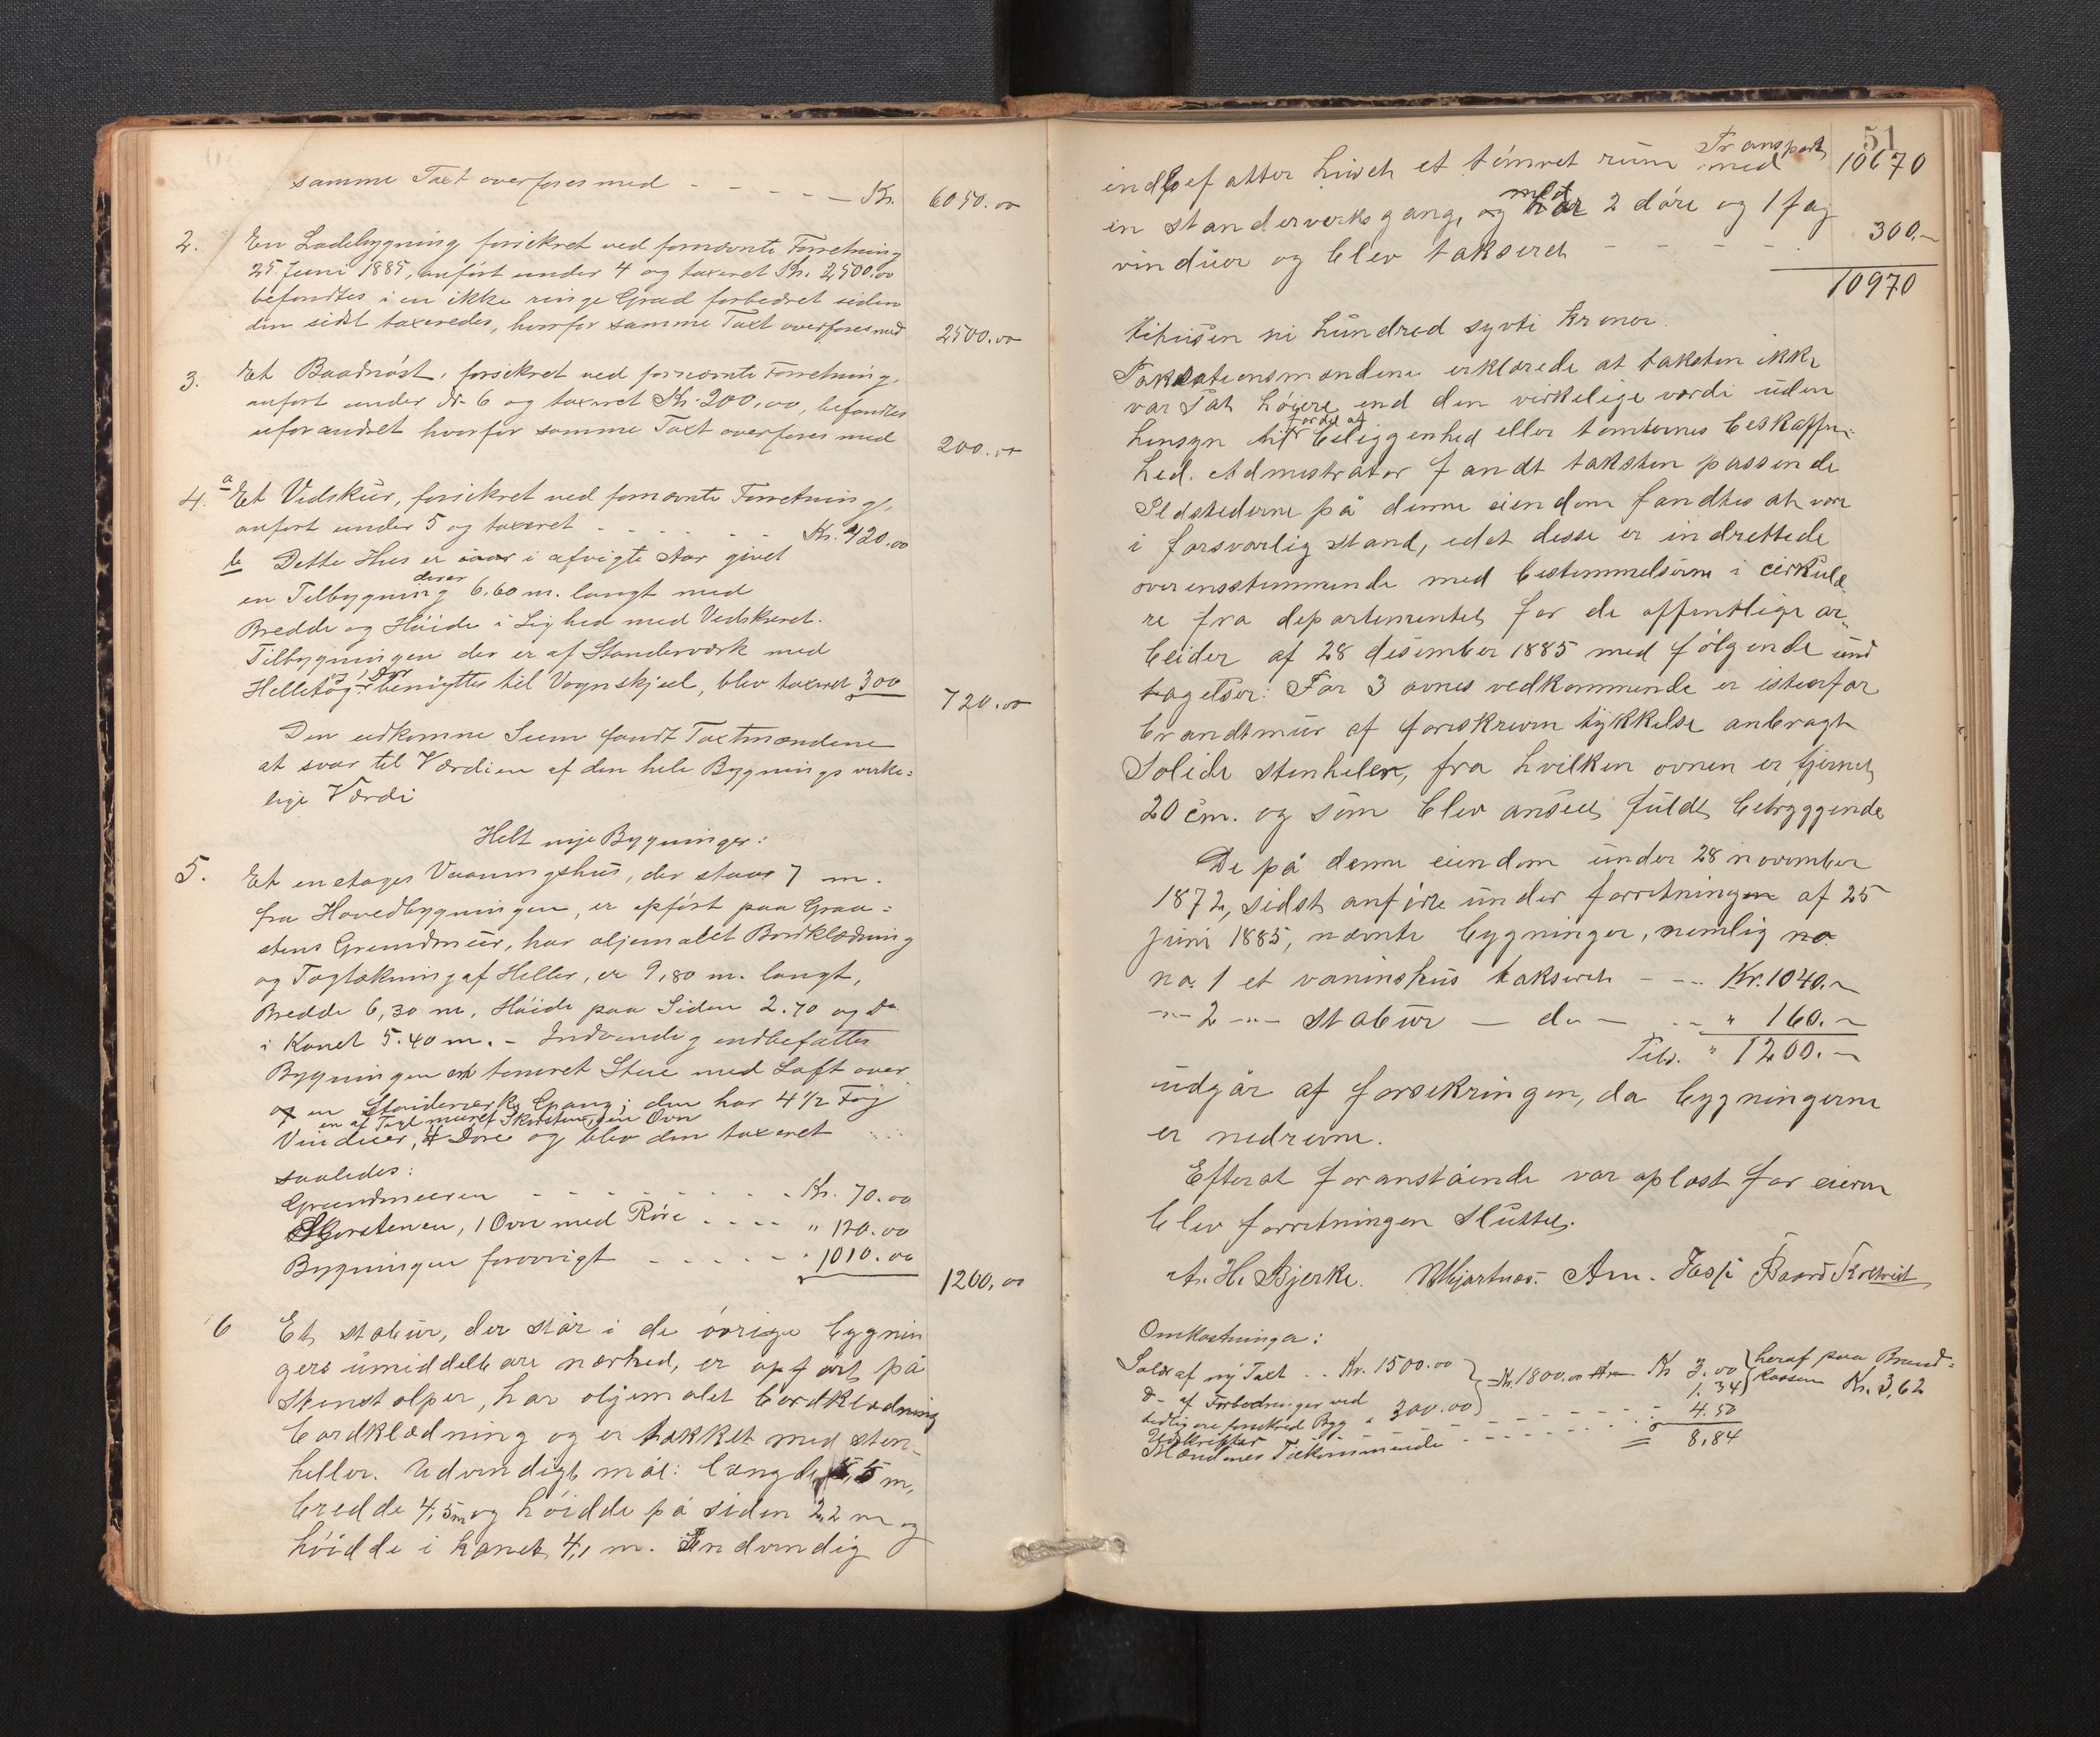 samme Taxt overføres med - - - - - Kr. 6050.00
2. En Ladebygning forsikret ved fornævnte Forretning
25. Juni 1885, anført under 4 og taxeret Kr. 2500.00
befandtes i en ikke ringe Grad forbedret siden
den sidst taxeredes, hvorfor samme Taxt overføres med 2500.00
3. Et Baadnøst, forsikret ved fornævnte Forretning,
anført under Nr. 6 og taxeret Kr. 200.00, befandtes
uforandret hvorfor samme Taxt overføres med 200.00
4. a Et Vedskur, forsikret ved fornævnte Forretning,
anført under 5 og taxeret - - - - - Kr. 420.00
b Dette Hus er i afvigte Aar givet
en Tilbygning der er 6,60 m. langt med
Bredde og Høide i Lighed med Vedskuret.
Tilbygningen der er af Standerværk med
Helletag og 1 Dør benyttes til Vognskjul, blev taxeret 300 720.00
Den udkomne Sum fandt Taxtmændene
at svar til Værdien af den hele Bygnings virke=
lige Værdi
Helt nye Bygninger:
5. Et enetages Vaaningshus, der staar 7 m.
fra Hovedbygningen, er opført paa Graa=
stens Grundmur, har oljemalet Bordklædning
og Tagtækning af Heller, er 9,80 m. langt,
Bredde 6,30 m, Høide paa Siden 2.70 og Do
i Kanet 5.40 m. - Indvendig indbefatter
Bygningen en tømret Stue med Loft over
og en Standerværks Gang; den har 4 1/2 Fag
en af Tegl muret Skorsten, en Ovn
Vinduer, 4 Døre og blev den taxeret
saaledes:
Grundmuren - - - - - - - - Kr. 70.00
Skorstenen, 1 Ovn med Røre - - - - " 120.00
Bygningen forøvrigt - - - - - " 1010.00
1200,00
6 Et stabur, der står i de øvrige bygnin
gers umiddelbare nærhed, er opført på
Stenstolper, har oljemalet bordklædning
bordklædning og er takket med sten-
heller. Udvendigt mål: længde 5,5 m,
bredde 4,5 m og høidde på siden 2,2 m og
høidde i kanet 4,1 m. Indvendig
51
Transport 10670
indbefatter huset et tømret rum med
en standerverks gang, og med 2 døre og 1 fag
vinduer og blev takseret - - - - - 300.-
10970
titusen ni hundred sytti kroner.
Taksationsmændene erklærede at taksten ikke
var sat høiere end den virkelige værdi uden
hensyn til fordel af beliggenhed eller tomternes beskaffen-
hed. Admistrator fandt taksten passende
Ildstederne på denne eiendom fandtes at være
i forsvarlig stand, idet desse er indrettede
overensstemmende med bestemmelserne i cirkulæ
re fra departementet for de offentlige ar-
beider af 28 desember 1885 med følgende und
tagelser: For 3 ovnes vedkommende er istedfor
brandtmur af foreskreven tykkelse anbragt
Solide stenheler, fra hvilken ovnen er fjernet
20 cm. og som blev anseet fuldt betryggende
De på denne eiendom under 28 november
1872, sidst anførte under forretningen af 25
juni 1885, nævnte bygninger, nemlig no
no. 1 et våninshus takseret - - - Kr. 1040.-
-"- 2 -"- stabur - do - - - " 160.-
Tils. " 1200.-
udgår af forsikringen, da bygningerne
er nedrevne.
Efterat foranstående var oplæst for eieren
blev forretningen sluttet.
A. H. Bjerke. Am. Baard
Omkostninger:
Salær af ny Taxt . . Kr. 1500.00 } = Kr. 1800.00 Kr 3.00 } heraf paa Brand=
D- af Forbedringer ved
tidligere forsikred Byg " 300.00 1.34 kassen Kr. 3,62
Udskrifter - - - - - - - - 4.50
Mændenes Tilkommende - - - - - = 8,84